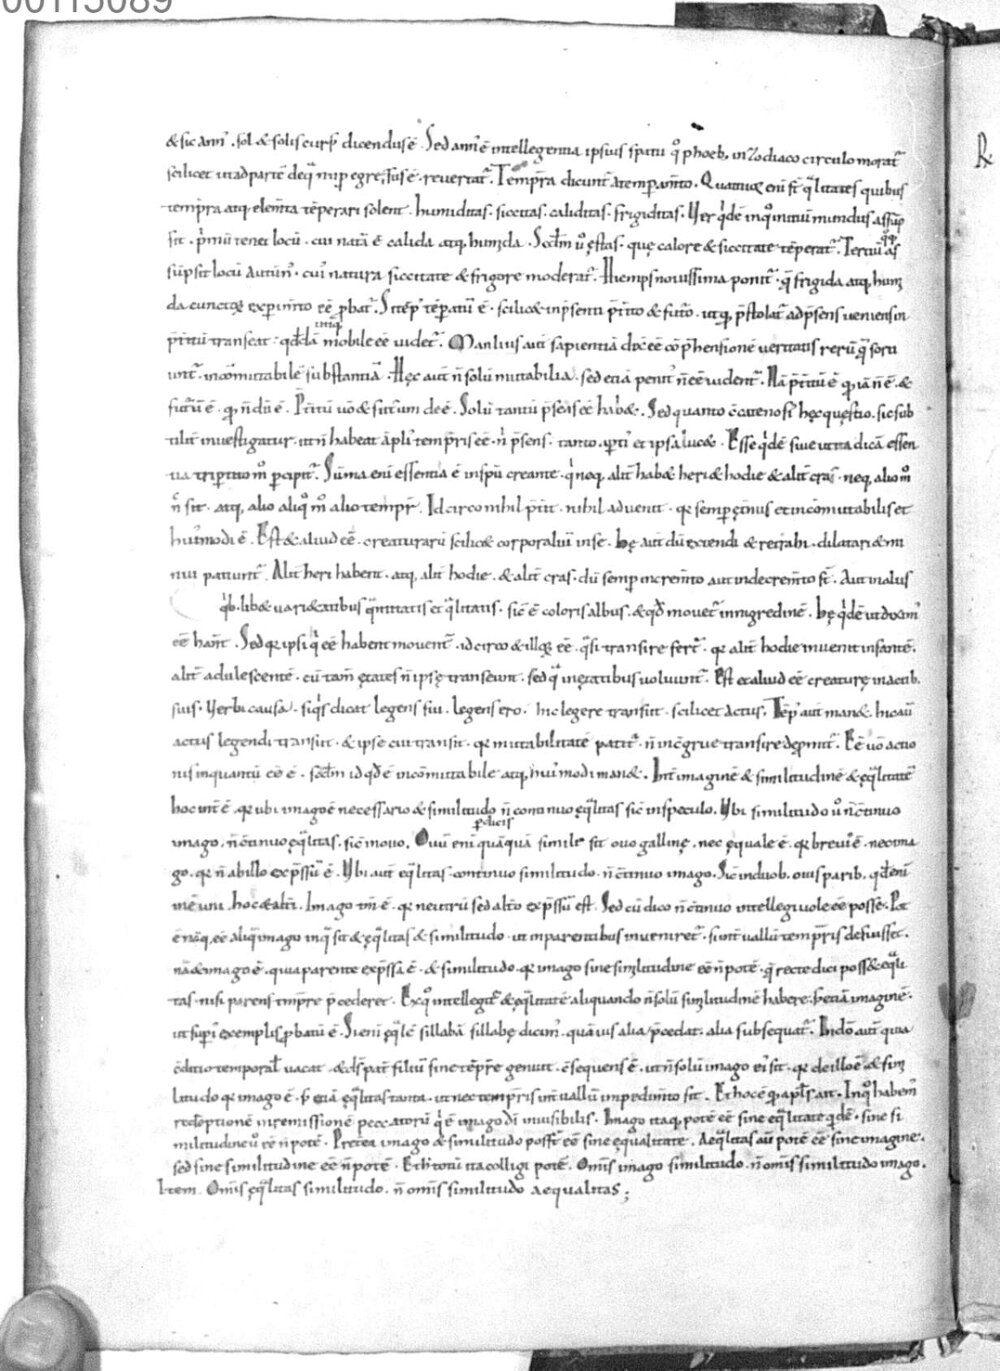 00115089
& sic ann᷒ . sol & solis curs᷒ dicendus ē . Sed ann᷒ ē intellegentia ipsius spatii q° phoeb᷒ in zodiaco circulo morat᷒
scilicet ut ad partē de q̃ nup egressus ē . revertat᷒ . Tempr̃a dicunt᷒ a temperam̄to . Quattuor eni sf̃ q̃litates quibus
tempr̃a atq; elem̃ta tēperari solent . humiditas . siccitas . caliditas . frigiditas . Ver q̓dē in q° initiū mundus assūp
sit . p̓mū tenet locū . cui nat̃a ē calida atq; humida . Scd̃m ū ęstas . quę calore & siccitate tēperat᷒ . Tertiū
sūpsit locū autūn᷒ . cui᷒ natura siccitate & frigore moderat᷒ . Hiemps novissima ponit᷒ . q̃ frigida atq; humi
da cunctoꝝ exper̃im̃to ēē p̃bat᷒ . tēp᷒ tēpatiū ē . scilic& in p̃senti p̃t̃ito & fut᷒o . ut q; p̃stolat᷒ ad p̃sens veniens in
p̃t̃itū transeat : mobile ēē videt᷒ . Manlius aut̃ sapientiā dic̃ ēē cōp̃hensionē veritatis rerū q̃ sorti
unt᷒ . incōmutabilē substantiā . Hęc aut̃ ñ solū mutabilia . sed etiā penit᷒ ñ ēē vident᷒ . Nā p̃t̃itū ē q; iā ñ ē . &
futurū ē . q; ñ dū ē . P̃t̃itū v̄o & futurum dē ē . Solū tantū p̃sens ēē hab& . Sed quanto hęc quęstio . sic sub
tilit̃ investigatur . ut ñ habeat āpli᷒ tempr̃is ēē . n̓ p̃sens . tanto et ipsa . Esse q̓dē sive ut ita dicā essen
tia tripertito m° p̃cipit᷒ . Sūma eni essentia ē in sp̃u creante . q̓ neq; alit̃ hab& heri & hodie & alit̃ cras . neq; alio m°
ñ sit . atq; alio aliq° m° alio tempr̃ . Idcirco nihil p̃t̃it . nihil advenit . q᷒ semp et incōmutabilis et
hui᷒modi ē . Est & aliud ēē . creaturarū scilic& corporaliū in se . hę aut̃ dū extendi & ret̃hi . dilatari & mi
nui patiunt᷒ . Alit̃ heri habent . atq; alit̃ hodie . & alit̃ cras . dū semp in crem̃to aut in decrem̃to sf̃ . Aut in aliis
q̓b; lib& vari&atibus q̃ntitatis et q̃litatis . sic̃ ē coloris albus . & q̃d movet᷒ in nigredinē . hę q̓dē
ēē hañt . Sed q᷒ ipsi q̓ ēē habent movent᷒ . idcirco & illoꝝ ēē . q̃si transire fert᷒ . q᷒ alit̃ hodie invenit infantē .
alit̃ adulescentē . cū tam̃ ętates ñ ipsę transeunt . sed q̃ in ętatibus volvunt᷒ . Est et aliud ēē creaturę in actib;
suis . Verbi causa . siq̓s dicat legens fui . legens ero . hic legere transiit . scilicet actus . Tēp᷒ aut̃ man& . hic aū
actus legendi transiit . & ipse cui transit . q᷒ mutabilitatē patit᷒ . ñ incōgrue transire dep̃mit᷒ . Eē v̄o actio
nis in quantū ēē ē . scd̃m id q̃d ē incōmutabile atq; hui᷒modi man& . Int̃ imaginē & similitudinē & ęq̃litatē
hoc int̃ ē . q᷒ ubi imago ē necessario & similitudo ñ continuo ęq̃litas sic̃ in speculo . Ubi similitudo ū ñ cōtinuo
imago . ñ cōtinuo ęq̃litas . sic̃ in ovo . Ovū eni p̃dicis quāquā simile sit ovo gallinę . nec ęquale ē . q᷒ brevi᷒ ē . nec ima
go . q᷒ ñ ab illo exp̃ssū ē . Ubi aut̃ ęq̃litas . continuo similitudo . ñ cōtinuo imago . Sic̃ in duob; ovis parib; q̃d eni
inē uni . hoc & alt̃i . Imago tñ ē . q᷒ neutrū sed alt̃o exp̃ssū est . Sed cū dico ñ cōtinuo intellegi volo ēē posse . Pot̃
ē nāq; ēē aliq̃ imago in q̃ sit & ęq̃litas & similitudo . ut in parentibus inveniret᷒ . si int̃vallū tempr̃is defuisset .
nā & imago ē . quia parente exp̃ssa ē . & similitudo . q᷒ imago sine similitudine ēē ñ potē . q̃ recte dici poss& ęq̃li
tas . nisi parens tmp̃re p̃cederet . Ex q° intellegit᷒ & ęq̃litatē aliquando ñ solū similitudinē habere . s; etiā imaginē .
ut sup̃i exemplis p̃batū ē . Si eni ęq̃lē sillabā sillabę dicim᷒ . quāvis alia p̃cedat . alia subsequat᷒ . In dō aut̃ quia
cōditio temporal̃ vacat . & d̃s pat̃ filiū sine tēp̃re genuit . cōsequens ē . ut ñ solū imago ei᷒ sit . q᷒ de illo ē & simi
litudo q᷒ imago ē . s; etiā ęq̃litas tanta . ut nec tempr̃is int̃vallū impedim̃to sit . Et hoc ē q; apl̃s ait . In q° habem᷒
redēptionē in remissionē peccatorū q̓ ē imago dī invisibilis . Imago itaq; potē ēē sine ęq̃litate q̓dē . sine si
militudine ū ēē ñ potē . P̃terea imago & similitudo possn̄t ēē sine ęqualitate . Aeq̃litas aū potē ēē sine imagine .
sed sine similitudine ēē ñ potē . Et h̓ totū ita colligi potē . Om̃is imago similitudo . ñ om̃is similitudo imago .
Item . Om̃is ęq̃litas similitudo . ñ om̃is similitudo aequalitas ;